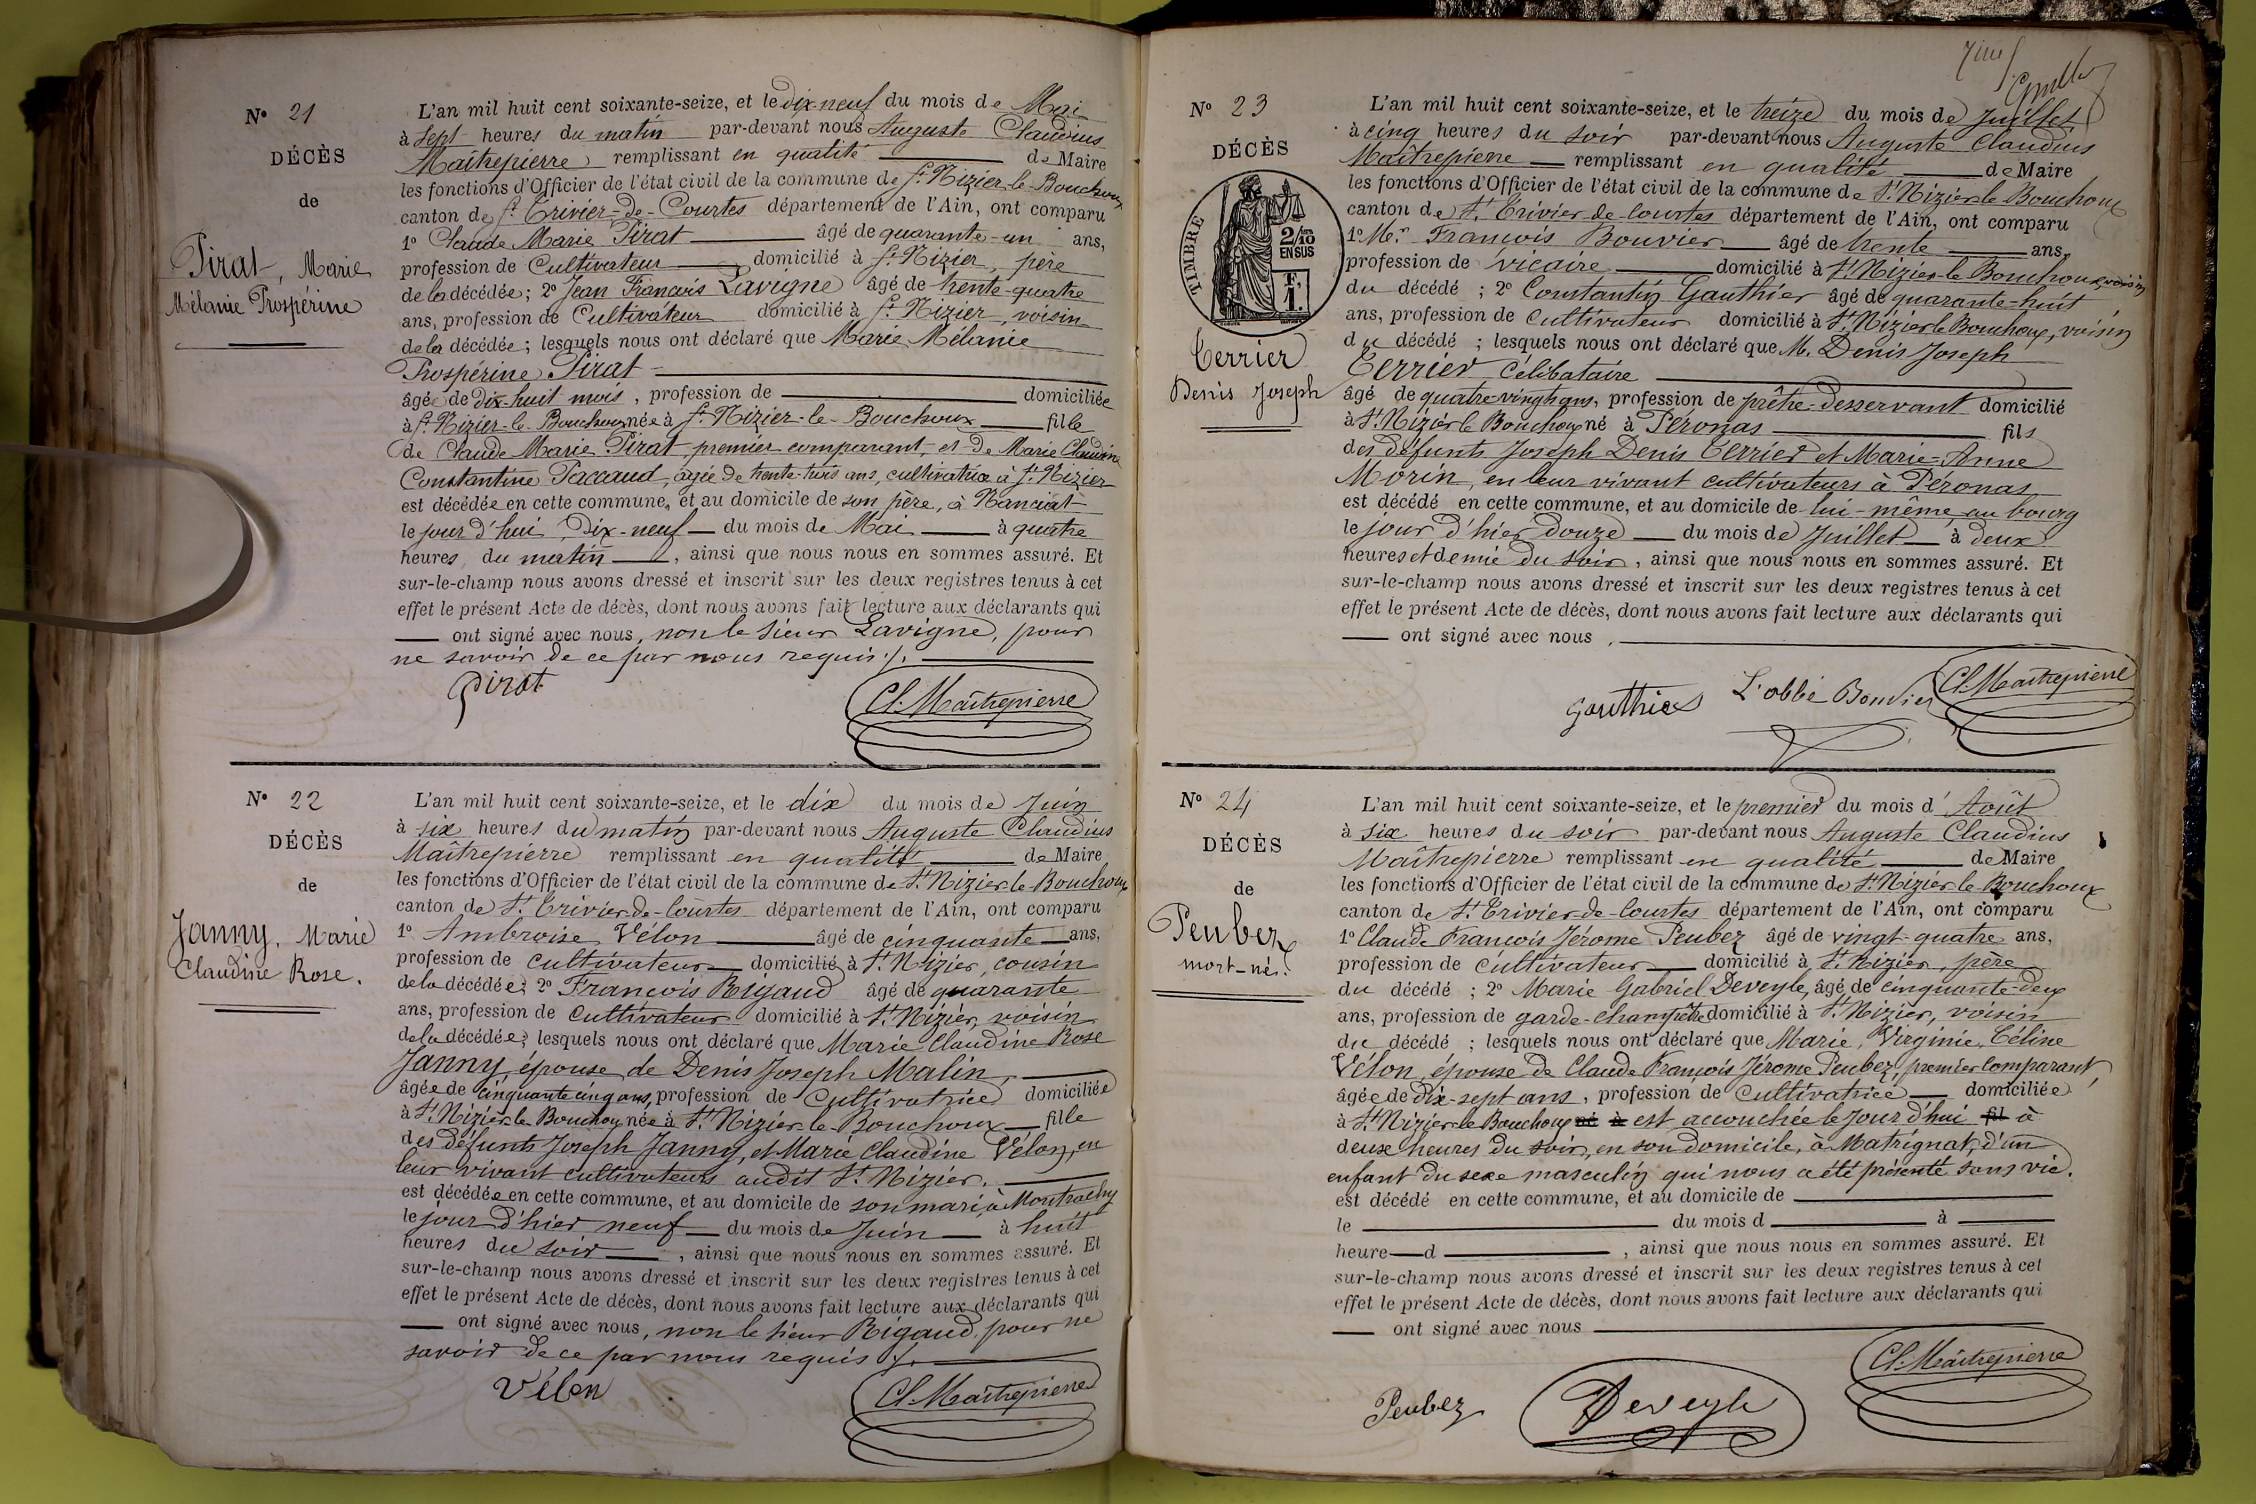 N° 21
DÉCÈS
de
Pirat, Marie
Mélanie Prospérine
L'an mil huit cent soixante-seize, et le dix-neuf du mois de Mai
à sept heures du matin par-devant nous Auguste Claudius
Maîtrepierre, remplissant en qualité de Maire
les fonctions d'Officier de l'état civil de la commune de St. Nizier-le-Bouchoux
canton de St. Trivier-de-Courtes département de l'Ain, ont comparu
1° Claude Marie Pirat âgé de quarante-un ans,
profession de Cultivateur domicilié à St. Nizier, père
de la décédée; 2° Jean François Lavigne âgé de trente-quatre
ans, profession de Cultivateur domicilié à St. Nizier, voisin
de la décédée; lesquels nous ont déclaré que Marie Mélanie
Prospérine Pirat
âgée de dix-huit mois, profession de domiciliée
à St. Nizier-le-Bouchoux née à St. Nizier-le-Bouchoux fille
de Claude Marie Pirat, premier comparant, et de Marie Claudine
Constantine Paccaud, agée de trente-trois ans, cultivatrice à St. Nizier
est décédée en cette commune, et au domicile de son père, à Nanciat
le jour d'hui, dix-neuf du mois de Mai à quatre
heures du matin, ainsi que nous nous en sommes assuré. Et
sur-le-champ nous avons dressé et inscrit sur les deux registres tenus à cet
effet le présent Acte de décès, dont nous avons fait lecture aux déclarants qui
ont signé avec nous, non le sieur Lavigne, pour
ne savoir de ce par nous requis./.
Pirat Cl. Maîtrepierre
N° 22
DÉCÈS
de
Janny, Marie
Claudine Rose.
L'an mil huit cent soixante-seize, et le dix du mois de Juin
à six heures du matin par-devant nous Auguste Claudius
Maîtrepierre remplissant en qualité de Maire
les fonctions d'Officier de l'état civil de la commune de St. Nizier-le-Bouchoux
canton de St. Trivier-de-Courtes département de l'Ain, ont comparu
1° Ambroise Vélon âgé de cinquante ans,
profession de cultivateur domicilié à St. Nizier, cousin
de la décédée; 2° François Rigaud âgé de quarante
ans, profession de Cultivateur domicilié à St. Nizier, voisin
de la décédée; lesquels nous ont déclaré que Marie Claudine Rose
Janny, épouse de Denis Joseph Malin,
âgée de cinquante cinq ans, profession de Cultivatrice domiciliée
à St. Nizier-le-Bouchoux née à St. Nizier-le-Bouchoux fille
des défunts Joseph Janny, et Marie Claudine Vélon, en
leur vivant cultivateurs audit St. Nizier.
est décédée en cette commune, et au domicile de son mari, à Montrachy
le jour d'hier neuf du mois de Juin à huit
heures du soir, ainsi que nous nous en sommes assuré. Et
sur-le-champ nous avons dressé et inscrit sur les deux registres tenus à cet
effet le présent Acte de décès, dont nous avons fait lecture aux déclarants qui
ont signé avec nous, non le sieur Rigaud, pour ne
savoir de ce par nous requis ./.
Vélon Cl. Maîtrepierre
N° 23
DÉCÈS
TIMBRE
2/10
EN SUS
F.
1.
Terrier
Denis Joseph
L'an mil huit cent soixante-seize, et le treize du mois de Juillet
à cinq heures du soir par-devant nous Auguste Claudius
Maîtrepierre remplissant en qualité de Maire
les fonctions d'Officier de l'état civil de la commune de St. Nizier-le-Bouchoux
canton de St. Trivier-de-Courtes département de l'Ain, ont comparu
1° Mr. François Bouvier âgé de trente ans,
profession de vicaire domicilié à St. Nizier-le-Bouchoux, voisin
du décédé ; 2° Constantin Gauthier âgé de quarante-huit
ans, profession de cultivateur domicilié à St. Nizier le Bouchoux, voisin
du décédé ; lesquels nous ont déclaré que M. Denis Joseph
Terrier célibataire
âgé de quatre vingts ans, profession de prêtre-desservant domicilié
à St. Nizier le Bouchoux né à Péronas fils
des défunts Joseph Denis Terrier et Marie-Anne
Morin, en leur vivant cultivateurs à Péronas
est décédé en cette commune, et au domicile de lui-même au bourg
le jour d'hier douze du mois de Juillet à deux
heures et demie du soir, ainsi que nous nous en sommes assuré. Et
sur-le-champ nous avons dressé et inscrit sur les deux registres tenus à cet
effet le présent Acte de décès, dont nous avons fait lecture aux déclarants qui
ont signé avec nous,
Gauthier L'abbé Bouvier Cl. Maîtrepierre
N° 24
DÉCÈS
de
Peubez
mort-né.
L'an mil huit cent soixante-seize, et le premier du mois d'Août
à six heures du soir par-devant nous Auguste Claudius
Maîtrepierre remplissant en qualité de Maire
les fonctions d'Officier de l'état civil de la commune de St. Nizier-le-Bouchoux
canton de St. Trivier-de-Courtes département de l'Ain, ont comparu
1° Claude François Jérome Peubez âgé de vingt-quatre ans,
profession de cultivateur domicilié à St. Nizier, père
du décédé ; 2° Marie Gabriel Deveyle, âgé de cinquante-deux
ans, profession de garde-champêtre domicilié à St. Nizier, voisin
du décédé ; lesquels nous ont déclaré que Marie, Virginie, Céline
Vélon, épouse de Claude François Jérome Peubez, premier comparant,
âgée de dix-sept ans, profession de Cultivatrice domiciliée
à St. Nizier-le-Bouchoux né à est accouchée le jour d'hui fil à
deux heures du soir, en son domicile, à Matrignat, d'un
enfant du sexe masculin qui nous a été présenté sans vie.
est décédé en cette commune, et au domicile de
le du mois d à
heure d , ainsi que nous nous en sommes assuré. Et
sur-le-champ nous avons dressé et inscrit sur les deux registres tenus à cet
effet le présent Acte de décès, dont nous avons fait lecture aux déclarants qui
ont signé avec nous
Peubez Deveyle Cl. Maîtrepierre